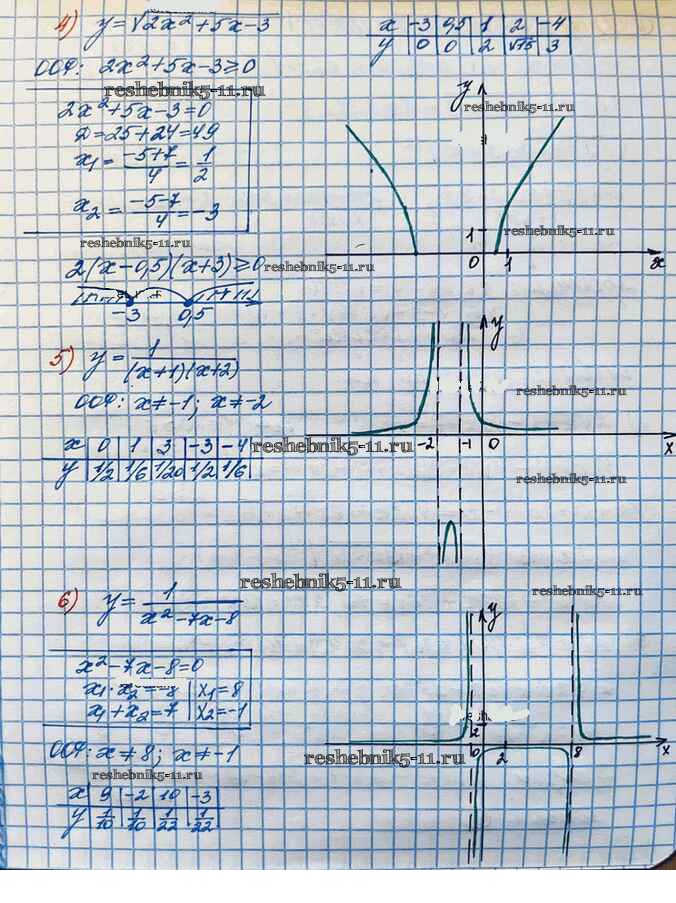 4) y=√2x²+5x-3
x -3 0,5 1 2 -4
y 0 0 2 √15 3
ООФ: 2x²+5x-3≥0
resheb11-5.ru
2x²+5x-3=0
D=25+24=49
x₁= -5+7/4 = 1/2
x₂= -5-7/4 = -3
reshebnik5-11.ru
2(x-0,5)(x+3)≥0
+
-3 0,5
y
reshebnik5-11.ru
reshebnik5-11.ru
1
0 1 x
reshebnik5-11.ru
5) y= 1/(x+1)(x+2)
ООФ: x≠-1; x≠-2
x 0 1 3 -3 -4
y 1/2 1/6 1/20 1/2 1/6
reshebnik5-11.ru
y
reshebnik5-11.ru
-2 -1 0 x
reshebnik5-11.ru
reshebnik5-11.ru
6) y= 1/x²-7x-8
x²-7x-8=0
x₁·x₂=-8 | x₁=8
x₁+x₂=7 | x₂=-1
ООФ: x≠8; x≠-1
reshebnik5-11.ru
x 9 -2 10 -3
y 1/10 1/10 1/22 1/22
reshebnik5-11.ru
y
2
0 2 8 x
reshebnik5-11.ru